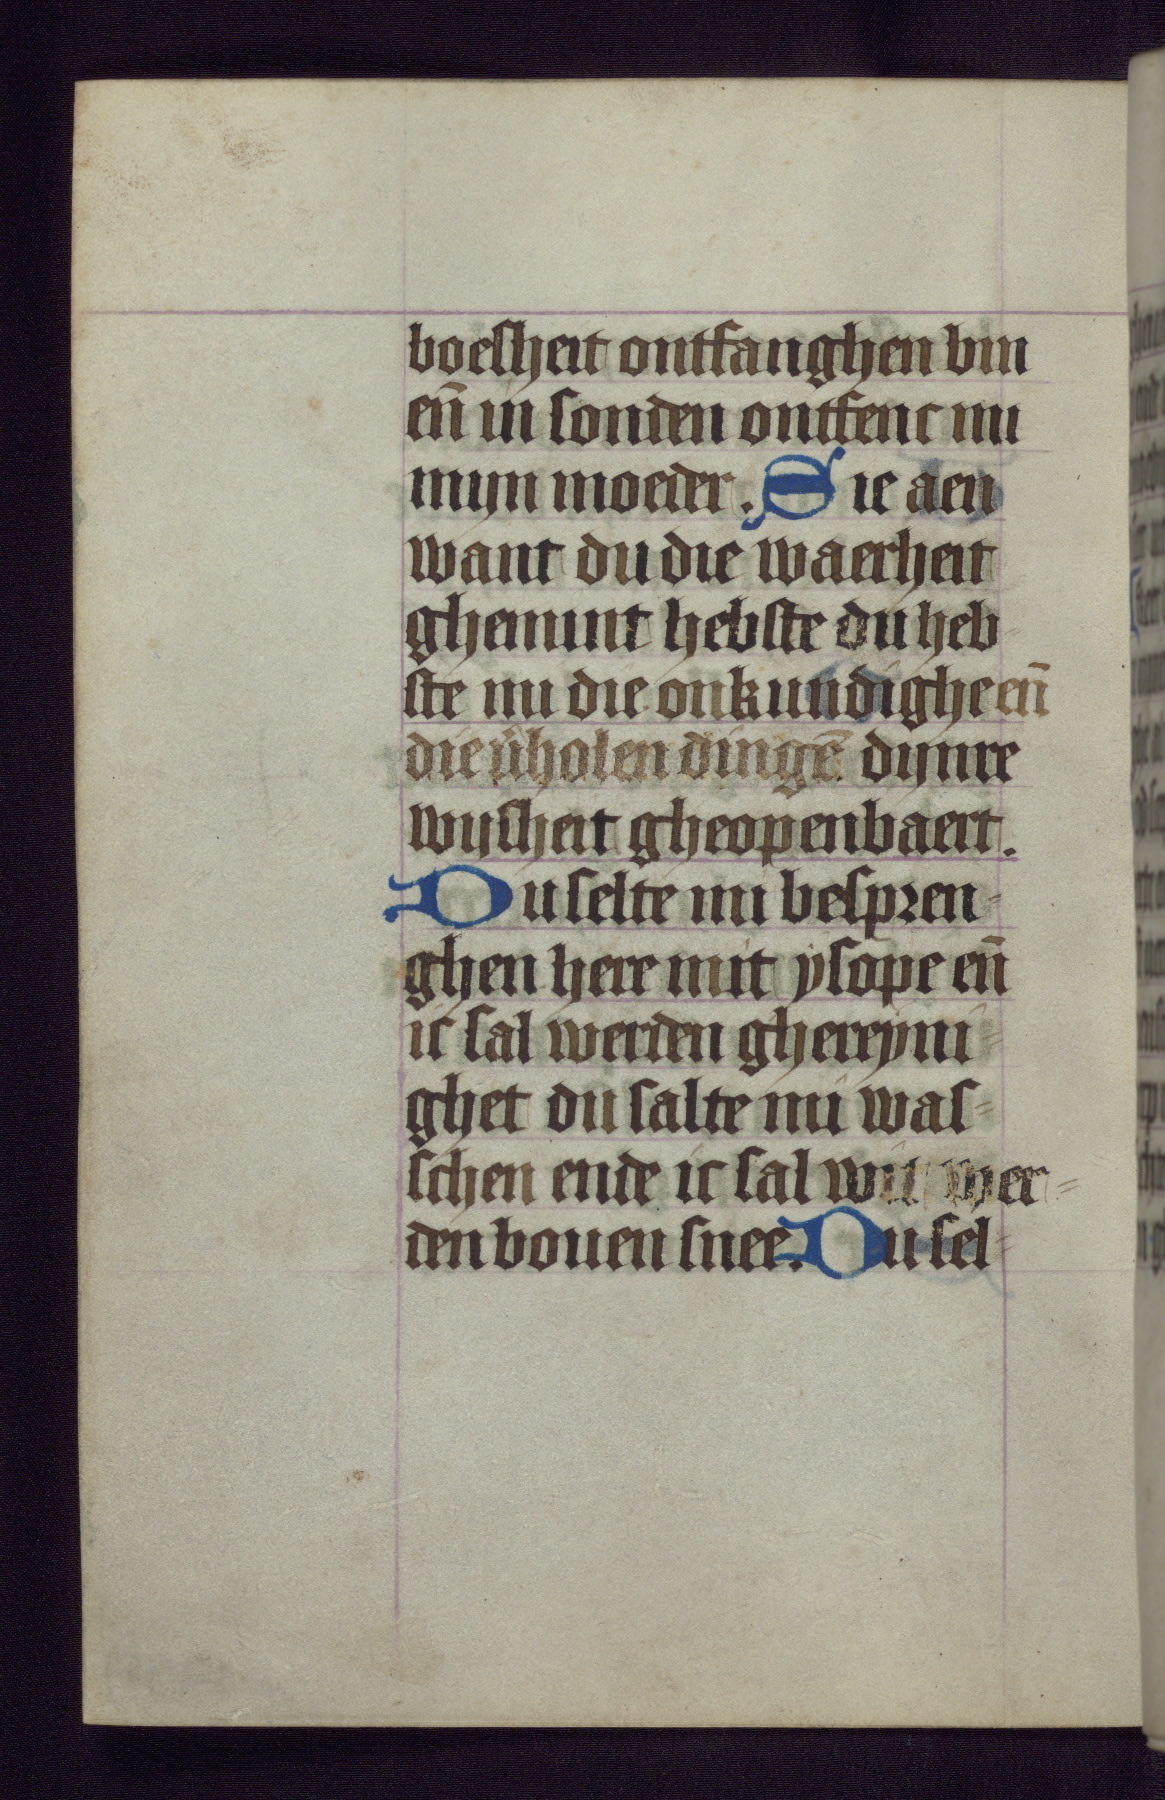 boesheit ontfanghen bin
en̄ in sonden ontfenc mi
mijn moeder. Sie aen
want du die waerheit
ghemint hebste du heb-
ste mi die onkundighe en̄
die v̄holen dingē dijnre
wijsheit gheopenbaert.
Du selte mi bespren-
ghen here mit ysope en̄
ic sal werden ghereyni-
ghet du salte mi was-
schen ende ic sal wit wer-
den bouen snee. Du sel-